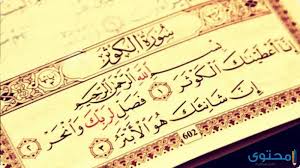 سُورَةُ الكَوْثَرِ
بِسْمِ اللَّهِ الرَّحْمَٰنِ الرَّحِيمِ
إِنَّا أَعْطَيْنَٰكَ ٱلْكَوْثَرَ ١ فَصَلِّ لِرَبِّكَ وَٱنْحَرْ ٢
إِنَّ شَانِئَكَ هُوَ ٱلْأَبْتَرُ ٣
602
محتوى